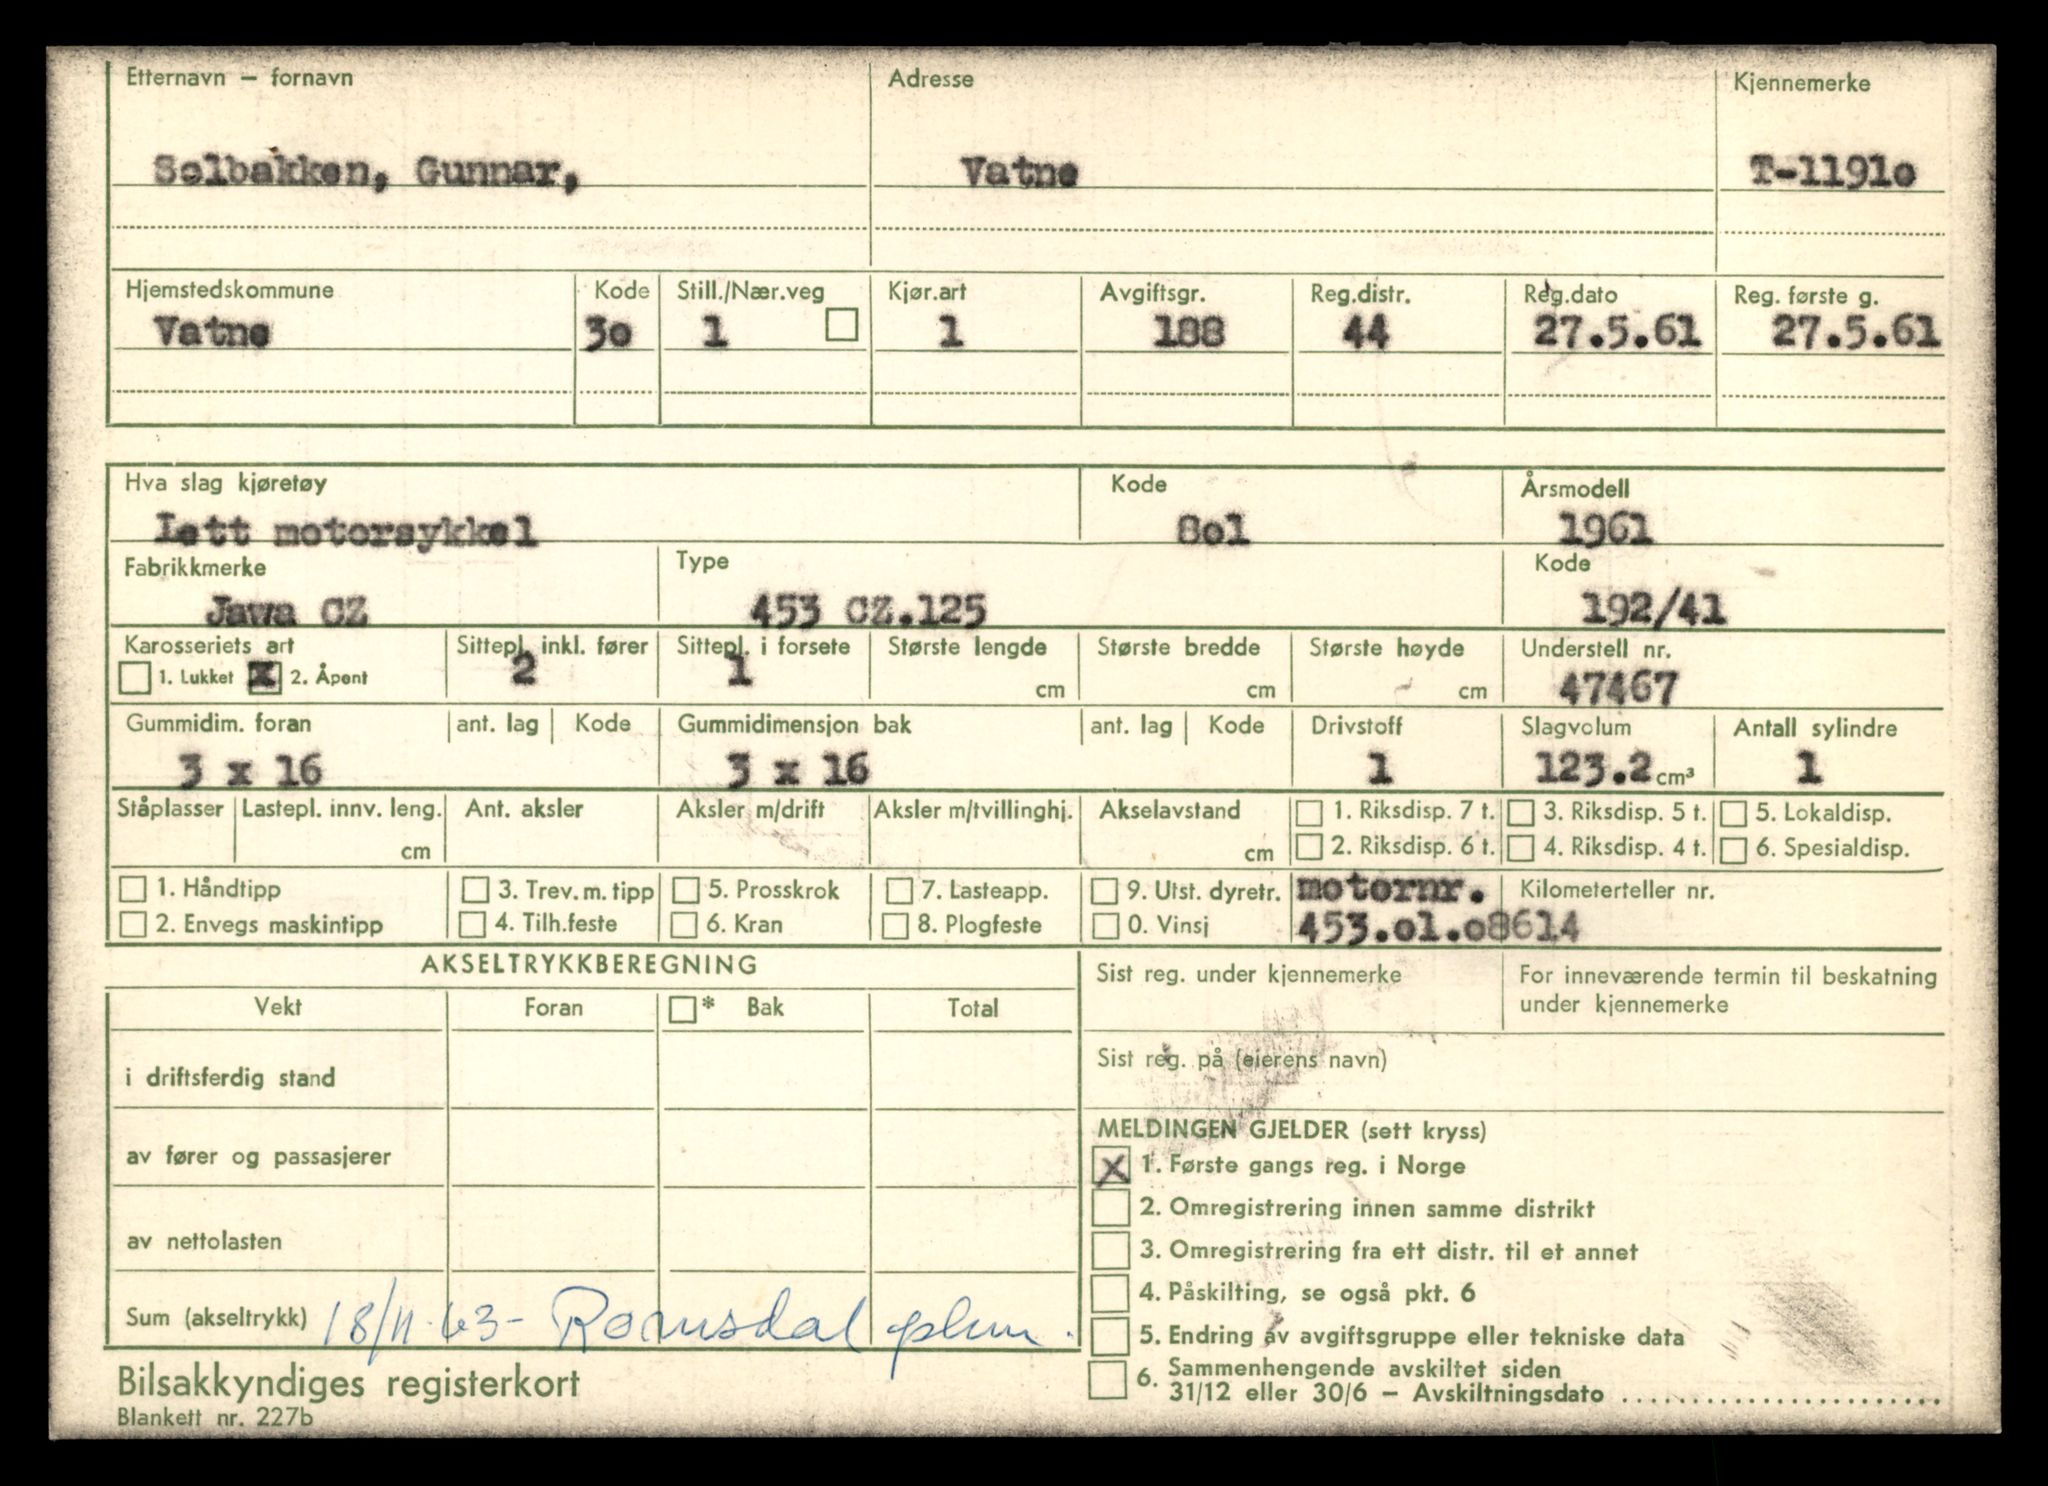 Etternavn – fornavn Adresse Kjennemerke
Solbakken, Gunnar, Vatne T-1191o
Hjemstedskommune Kode Still./Nær.veg Kjør.art Avgiftsgr. Reg.distr. Reg.dato Reg. første g.
Vatne 3o 1 1 188 44 27.5.61 27.5.61
Hva slag kjøretøy Kode Årsmodell
Lett motorsykkel 8o1 1961
Fabrikkmerke Type Kode
Jawa CZ 453 CZ.125 192/41
Karosseriets art Sittepl. inkl. fører Sittepl. i forsete Største lengde Største bredde Største høyde Understell nr.
1. Lukket X 2. Åpent 2 1 cm cm cm 47467
Gummidim. foran ant. lag Kode Gummidimensjon bak ant. lag Kode Drivstoff Slagvolum Antall sylindre
3 x 16 3 x 16 1 123.2 cm³ 1
Ståplasser Lastepl. innv. leng. Ant. aksler Aksler m/drift Aksler m/tvillinghj. Akselavstand 1. Riksdisp. 7 t. 3. Riksdisp. 5 t. 5. Lokaldisp.
cm cm 2. Riksdisp. 6 t. 4. Riksdisp. 4 t. 6. Spesialdisp.
1. Håndtipp 3. Trev. m. tipp 5. Prosskrok 7. Lasteapp. 9. Utst. dyretr. motornr. Kilometerteller nr.
2. Envegs maskintipp 4. Tilh.feste 6. Kran 8. Plogfeste 0. Vinsj 453.o1.o8614
AKSELTRYKKBEREGNING
Vekt Foran * Bak Total
i driftsferdig stand
av fører og passasjerer
av nettolasten
Sum (akseltrykk) 18/11-63- Romsdal
Bilsakkyndiges registerkort
Blankett nr. 227b
Sist reg. under kjennemerke For inneværende termin til beskatning
under kjennemerke
Sist reg. på (eierens navn)
MELDINGEN GJELDER (sett kryss)
X 1. Første gangs reg. i Norge
2. Omregistrering innen samme distrikt
3. Omregistrering fra ett distr. til et annet
4. Påskilting, se også pkt. 6
5. Endring av avgiftsgruppe eller tekniske data
6. Sammenhengende avskiltet siden
31/12 eller 30/6 – Avskiltningsdato ........................